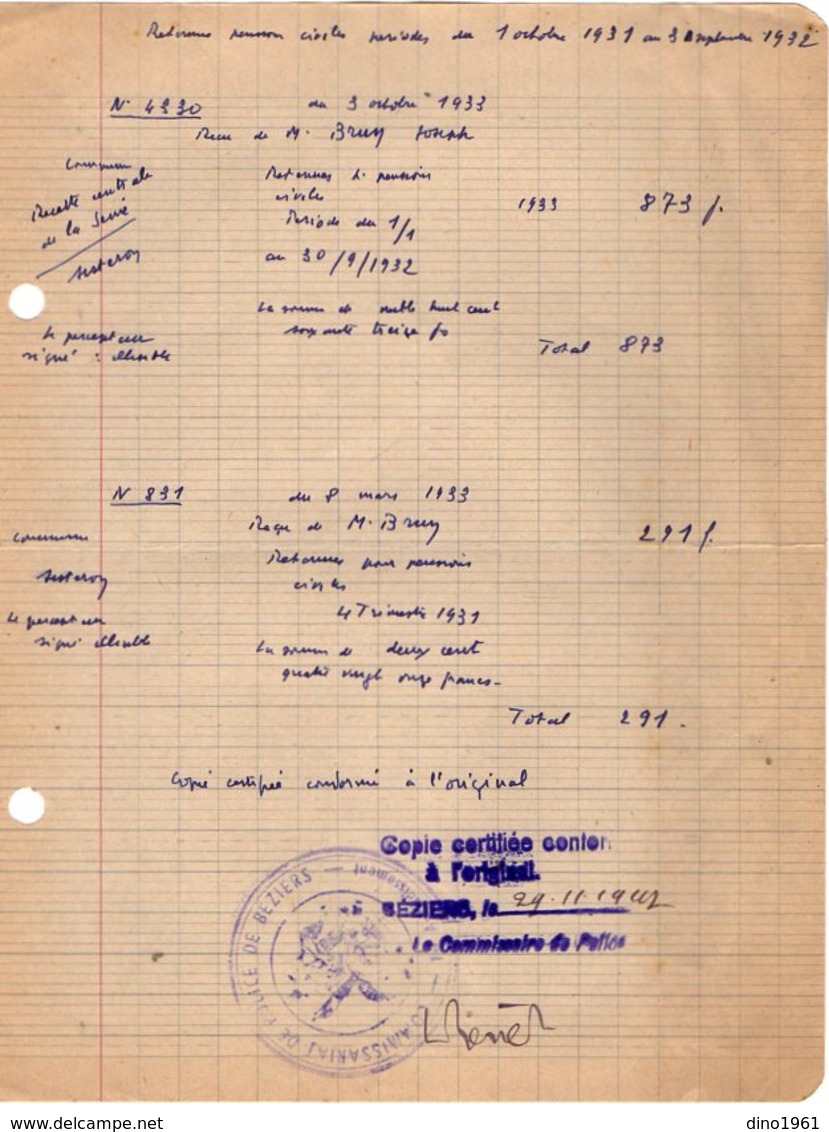 Retenues pension civiles periodes du 1 octobre 1931 au 30 septembre 1932
N° 4330 du 3 octobre 1933
Recu de M. Bruy Joseph
Commune
Recette centrale
de la Seine
Sisteron
Retenues p. pensions
civiles
1933 873 f.
Periode du 1/1
au 30/9/1932
La somme de huit cent
soixante treize fs
Le percepteur
signé : illisible
Total 873
N 831 du 8 mars 1933
Reçu de M. Bruy
291 f.
Commune
Sisteron
Retenues pour pensions
civiles
4 Trimestre 1931
Le percepteur
signé illisible
La somme de deux cent
quatre vingt onze francs -
Total 291.
Copie certifiée conforme à l'original
Copie certifiée confor
à l'original.
BÉZIERS, le 29.11.1942
Le Commissaire de Police
COMMISSARIAT DE POLICE DE BEZIERS
dino1961